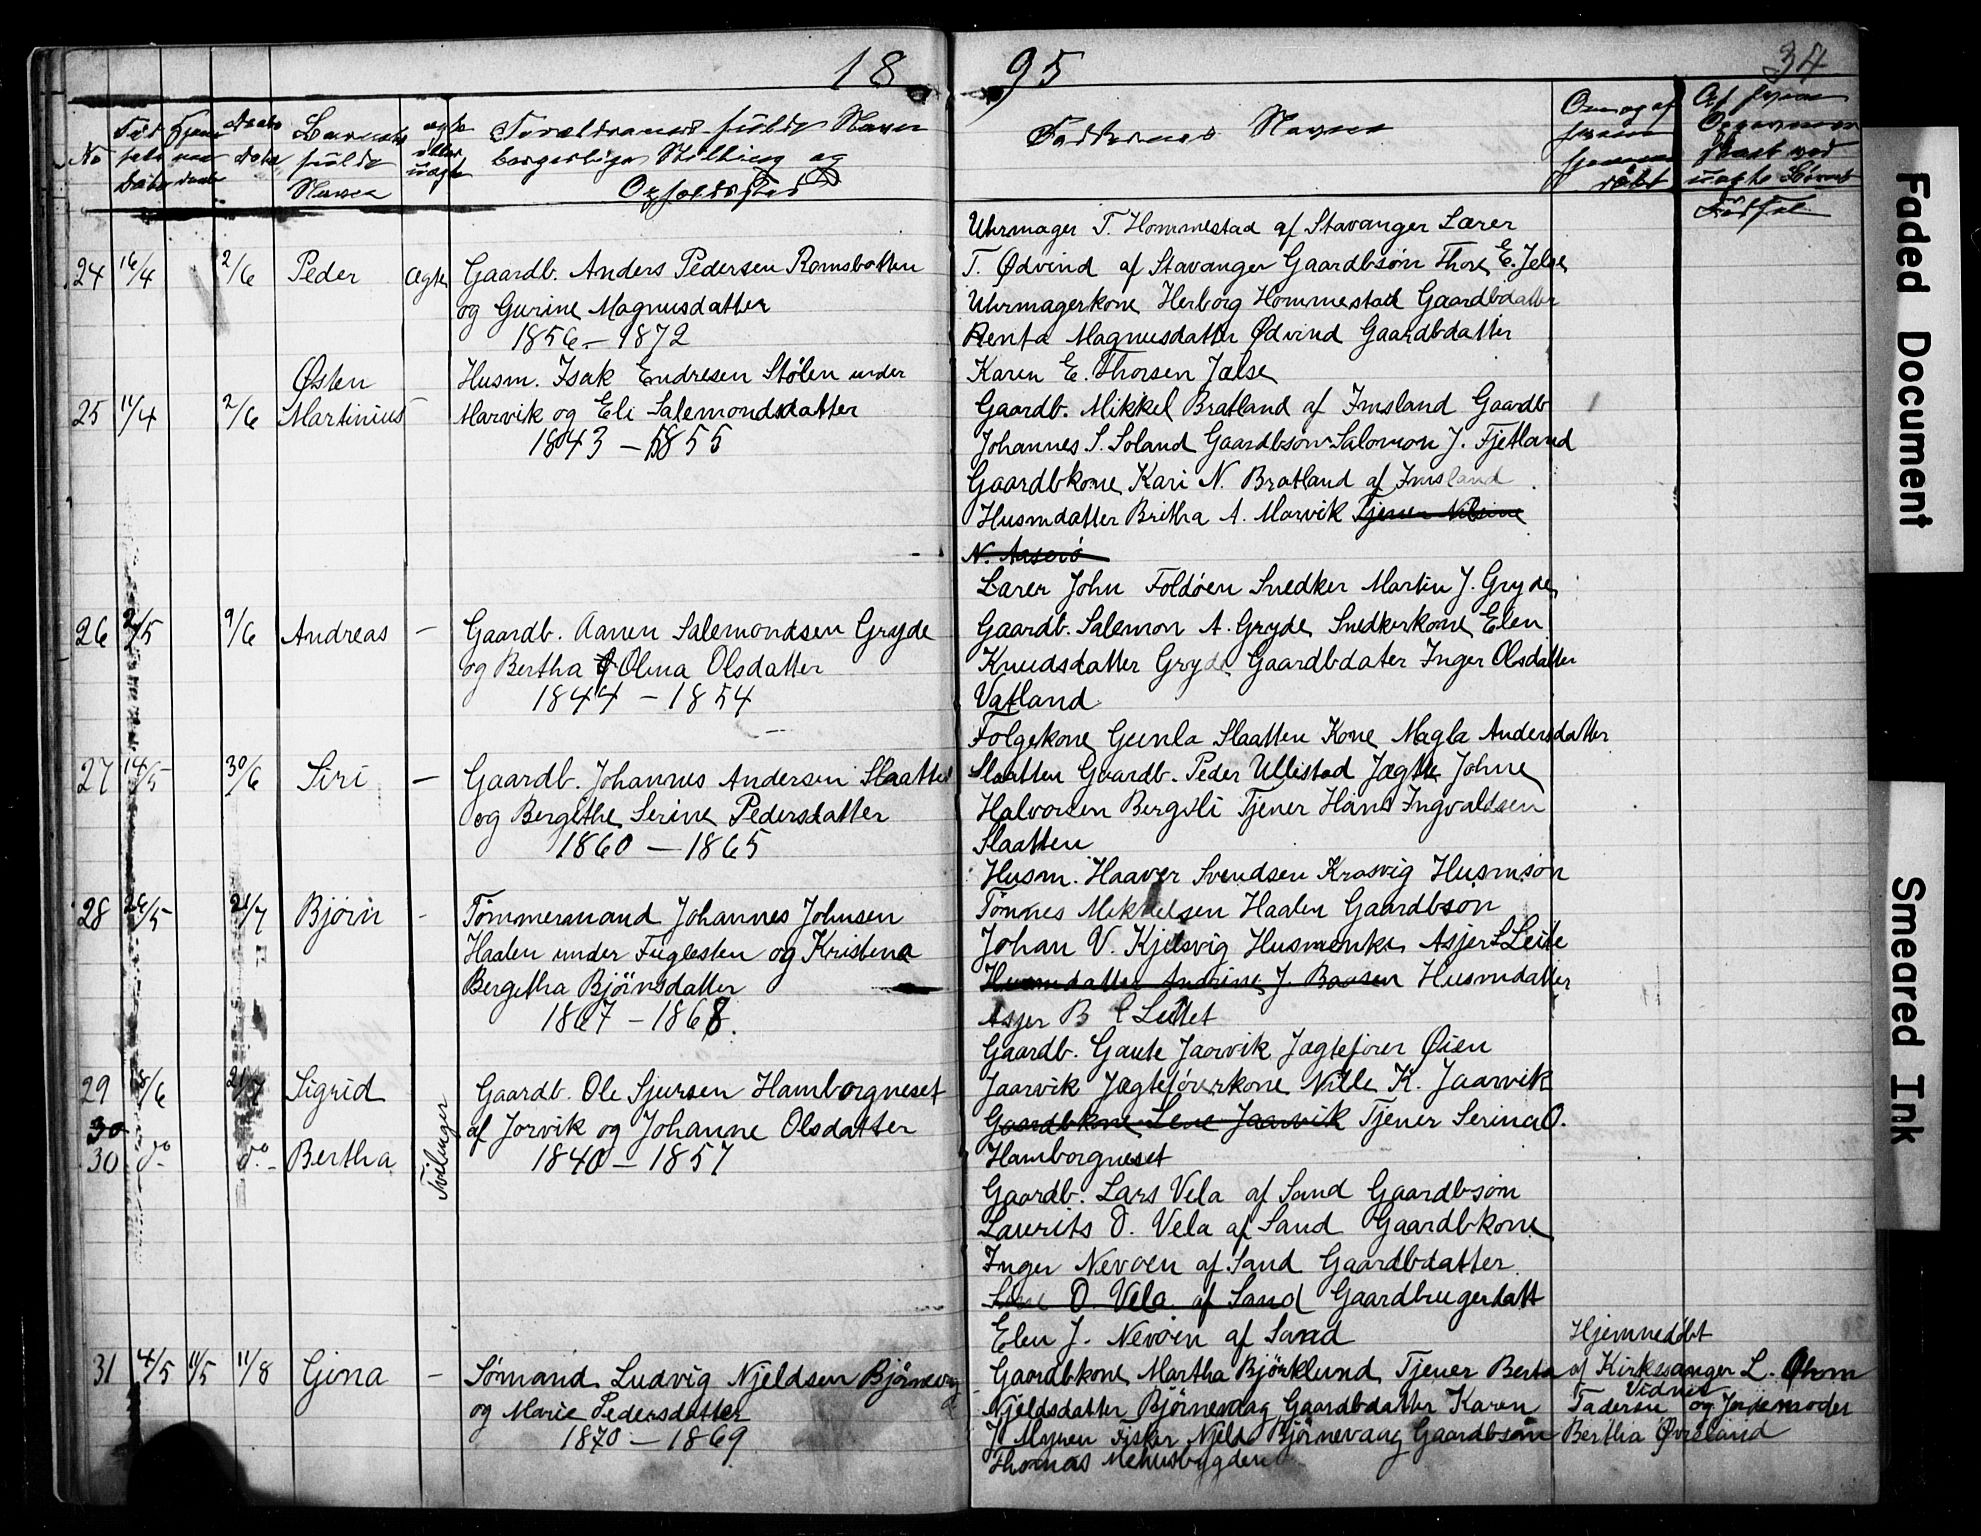 18 95 34
No Fødselsdato Hjemmedaab Daabsdato Barnets fulde Navn ægte eller uægte Forældrenes fulde Navn borgerlige Stilling og Opholdssted
Faddernes Navne
Om og af hvem hjemmedøbt
24 16/4 2/6 Peder Ægte Gaardb. Anders Pedersen Ramsbotten
og Gurine Magnusdatter
1856 - 1872
Uhrmager T. Hommestad af Stavanger Lærer
T. Ødvind af Stavanger Gaardbsøn Thore E. Jelse
Uhrmagerkone Herborg Hommestad Gaardbdatter
Renta Magnusdatter Ødvind Gaardbdatter
Karen E. Thorsen Jælse
25 11/4 2/6 Østen Martinius - Husm. Isak Endresen Stølen under
Marvik og Eli Salemondsdatter
1843 - 1855
Gaardb. Mikkel Bratland af Imsland Gaardb
Johannes S. Soland Gaardbsøn Salomon J. Fjetland
Gaardbkone Kari N. Bratland af Imsland
Husmdatter Britha A. Marvik Tjener Nilsine
N. Aaserø
26 9/6 Andreas - Gaardb. Aanen Salemondsen Gryde
og Bertha Olina Olsdatter
1844 - 1854
Lærer John Foldøen Snedker Martin J. Gryde
Gaardb. Salemon A. Gryde Snedkerkone Elen
Knudsdatter Gryde Gaardbdater Inger Olsdatter
Vatland
27 14/5 30/6 Siri - Gaardb. Johannes Andersen Slaatten
og Bergithe Serine Pedersdatter
1860 - 1865
Folgekone Gunla Slaatten Kone Magla Andersdatter
Slaatten Gaardb. Peder Ullestad Jægte Johne
Halvorsen Bergsli Tjener Hans Ingvaldsen
Slaatten
28 26/5 21/7 Bjørn - Tømmermand Johannes Johnsen
Haalen under Fuglesten og Kristena
Bergitha Bjørnsdatter
1867 - 1868.
Husm. Haaver Svendsen Krosvig Husmsøn
Tønnes Mikkelsen Haalen Gaardbsøn
Johan V. Kjilsvig Husmenke Asjer L Leite
Husmdatter Andrine J. Baasen Husmdatter
Asjer B L Leitet
29 8/6 21/7 Sigrid Tvilinger Gaardb. Ole Sjursen Hamborgneset
af Jorvik og Johanne Olsdatter
30
30 do do Bertha 1840 - 1857
Gaardb. Gaute Jaarvik Jægtefører Øien
Jaarvik Jægteførerkone Nille K. Jaarvik
Gaardbkone Lene Jaarvik Tjener Serina O.
Hamborgneset
Gaardb. Lars Vela af Sand Gaardbsøn
Laurits O. Vela af Sand Gaardbkone
Inger Nevøen af Sand Gaardbdatter
O. Vela af Sand Gaardbrugerdatt
Elen J. Nevøen af Sand
31 4/5 11/5 11/8 Gina - Sømand Ludvig Njeldsen Bjørnevag
og Marie Pedersdatter
1870 - 1869
Gaardbkone Martha Bjørklund Tjener Berta
Njeldsdatter Bjørnevaag Gaardbdatter Karen
J. Myren Fisker Njeld Bjørnevaag Gaardbsøn
Thomas Mehusbygden
Hjemmedøbt
af Kirkesanger L. Øhrn
Vidner
Faderen og Jordemoder
Bertha Øvreland
Faded Document
Smeared Ink